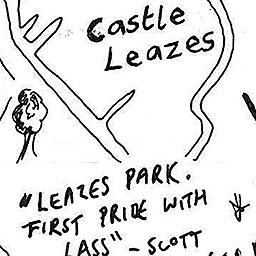 Castle
Leazes
"LEAZES PARK.
FIRST PRIDE WITH
LASS" - SCOTT